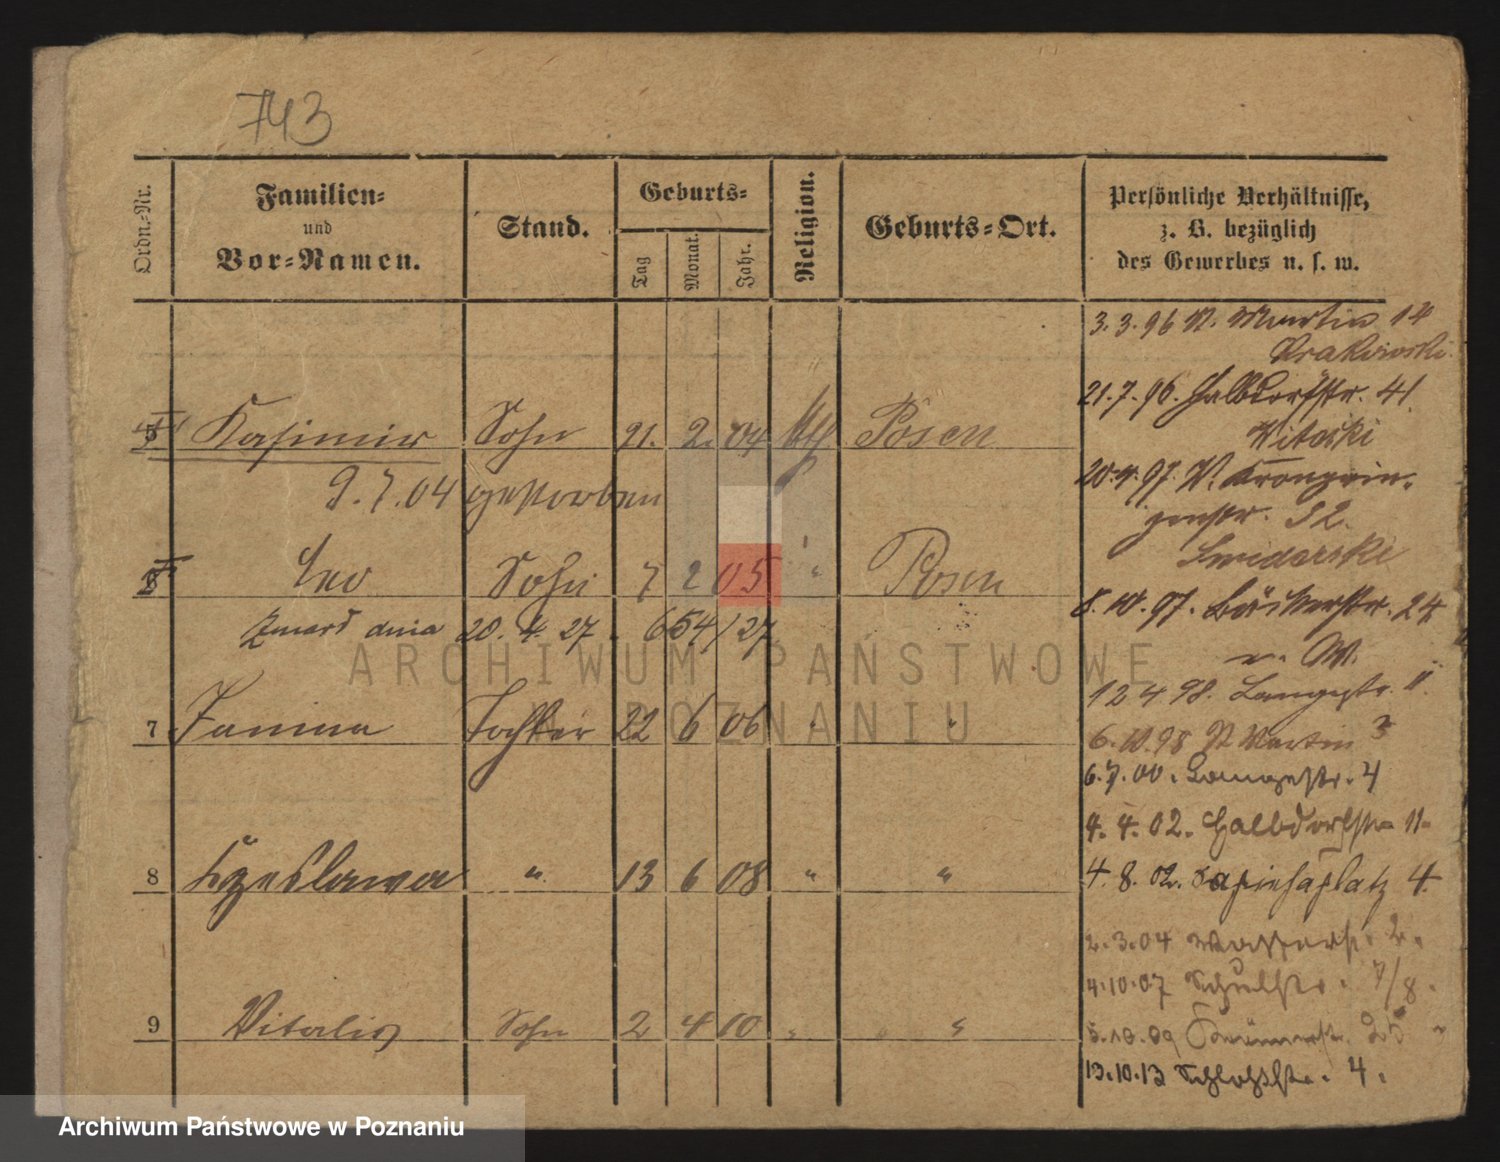 743
Ordn.-Nr.
Familien-
und
Vor-Namen.
Stand.
Geburts-
Tag
Monat.
Jahr.
Religion.
Geburts-Ort.
Persönliche Verhältnisse,
z. B. bezüglich
des Gewerbes u. s. w.
5 Kasimir Sohn 21. 2. 04 Posen
9.7.04 gestorben
6 Leo Sohn 7 2 05 " Posen
Zmarł dnia 20. 4. 27. 654/27
7 Janina Tochter 22 6 06 " "
8 Czeslawa " 13 6 08 " "
9 Vitalis Sohn 2 4 10 " "
3.3.96 St. Martin 14
Krakowski.
21.7.96. Halbdorfstr. 41
Witecki
97. W. Kronprin-
zenstr. 52.
Swidarski
8.10.97. Bäckerstr. 24
v. W.
12 4 98. Langestr. 11.
6.10.98 St Martin 3
6.7.00. Langestr. 4
4.4.02. Halbdorfstr 11.
4.8.02. Sapiehaplatz 4.
2.3.04 Wasserstr. 2.
4.10.07 Schulstr. 7/8.
5.10.09 25
13.10.13 Schloßstr. 4.
ARCHIWUM PAŃSTWOWE
W POZNANIU
Archiwum Państwowe w Poznaniu